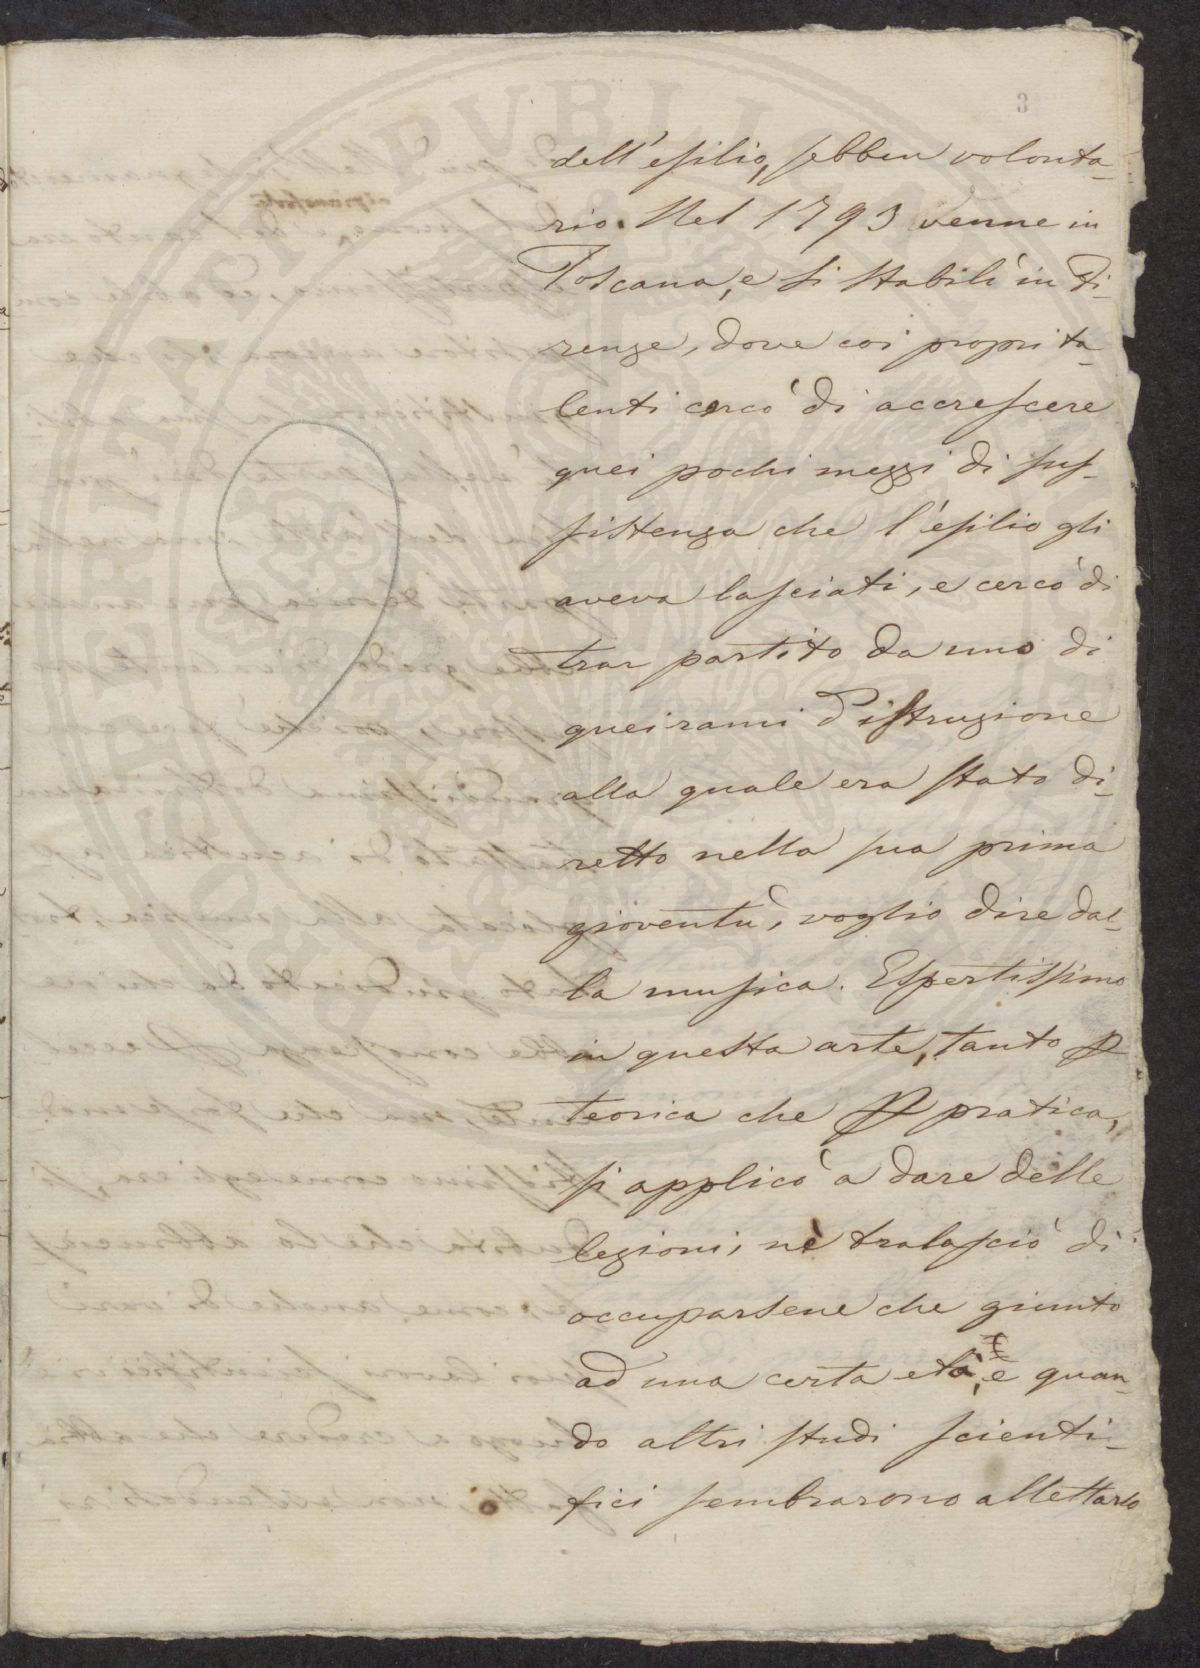 3
dell'esilio, sebben volonta-
rio. Nel 1793 venne in
Toscana, e si stabilì in Fi-
renze, dove coi propri ta-
lenti cercò di accrescere
quei pochi mezzi di sus-
sistenza che l'esilio gli
aveva lasciati, e cercò di
trar partito da uno di
quei rami d'istruzione
alla quale era stato di-
retto nella sua prima
gioventù, voglio dire dal-
la musica. Espertissimo
in questa arte, tanto p
teorica che p pratica,
si applicò a dare delle
lezioni, nè tralasciò di
occuparsene che giunto
ad una certa età, e quan-
do altri studi scienti-
fici sembrarono allettarlo